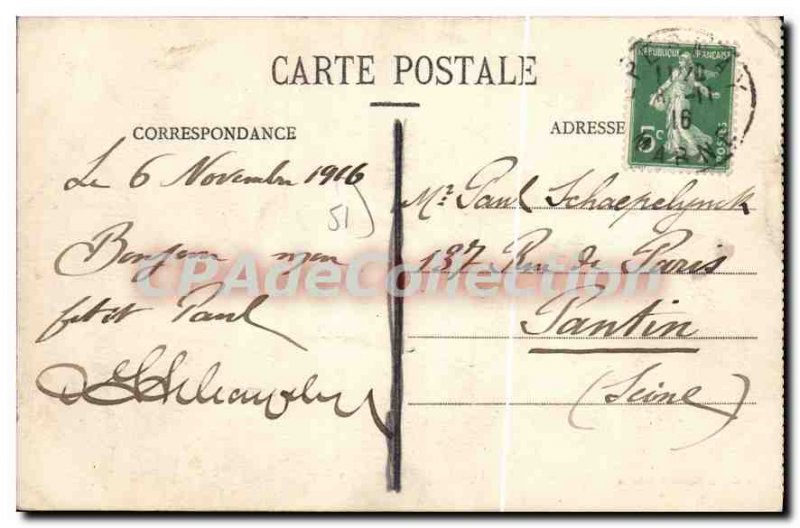 CARTE POSTALE
CORRESPONDANCE
Le 6 Novembre 1916
51
Bonjour mon
petit Paul
ADRESSE
RÉPUBLIQUE FRANÇAISE
5c
POSTES
11
16
MARNE
Mr. Paul Schaepelynck
137 Rue de Paris
Pantin
(Seine)
CPAdeCollection